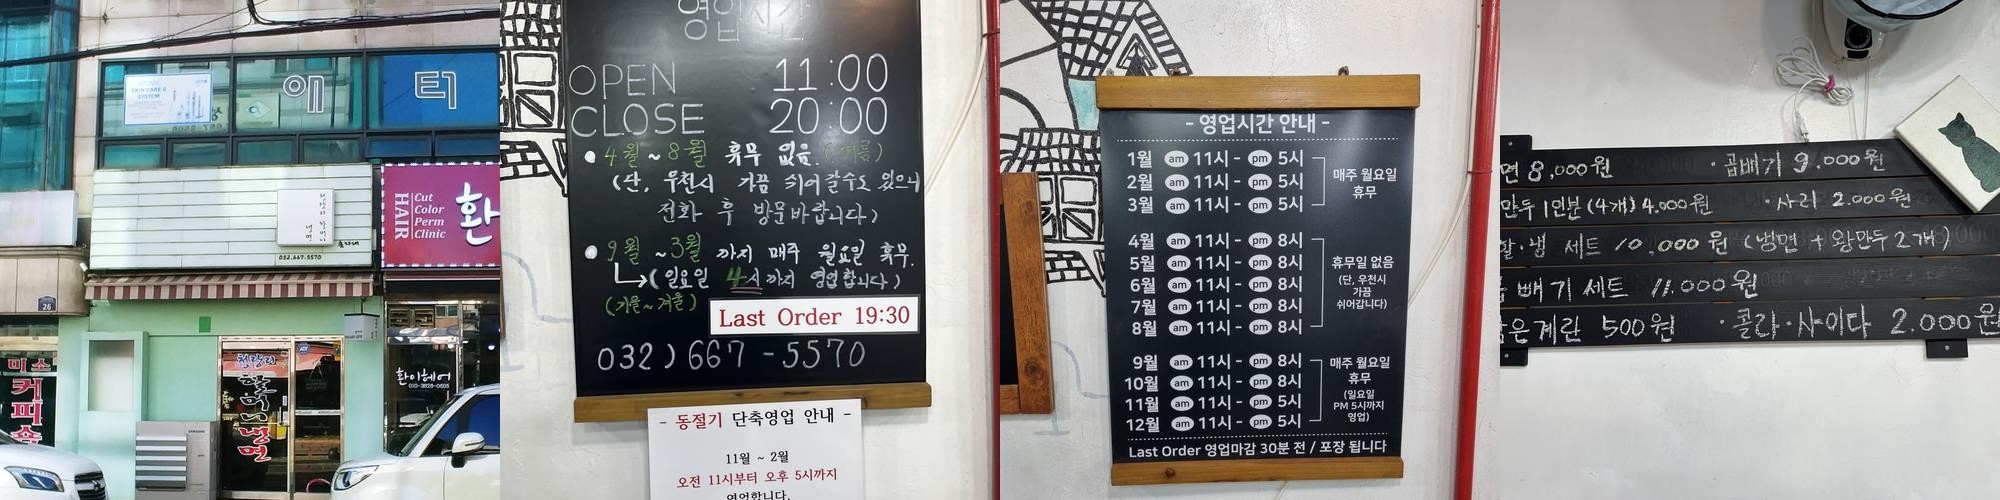 SKIN CARE &
SYSTEM
애
터
냉면
032.667.5570
HAIR
Cut
Color
Perm
Clinic
환
26
미소
커피숍
할머니냉면
환이헤어
010-3628-0605
영업시간
OPEN 11:00
CLOSE 20:00
4월 ~ 8월 휴무 없음. (여름)
(단, 우천시 가끔 쉬어갈수도 있으니
전화 후 방문바랍니다)
9월 ~ 3월 까지 매주 월요일 휴무.
(일요일 4시까지 영업합니다)
(가을~겨울)
Last Order 19:30
032)667-5570
- 동절기 단축영업 안내 -
11월 ~ 2월
오전 11시부터 오후 5시까지
영업합니다.
- 영업시간 안내 -
1월 am 11시 - pm 5시
2월 am 11시 - pm 5시
3월 am 11시 - pm 5시
매주 월요일
휴무
4월 am 11시 - pm 8시
5월 am 11시 - pm 8시
6월 am 11시 - pm 8시
7월 am 11시 - pm 8시
8월 am 11시 - pm 8시
휴무일 없음
(단, 우천시
가끔
쉬어갑니다)
9월 am 11시 - pm 8시
10월 am 11시 - pm 8시
11월 am 11시 - pm 5시
12월 am 11시 - pm 5시
매주 월요일
휴무
(일요일
PM 5시까지
영업)
Last Order 영업마감 30분 전 / 포장 됩니다
면 8,000원 · 곱배기 9.000원
만두 1인분(4개) 4,000원 · 사리 2.000원
할·냉 세트 10,000원 (냉면 + 왕만두 2개)
빼기 세트 11.000원
은계란 500원 · 콜라·사이다 2.000원